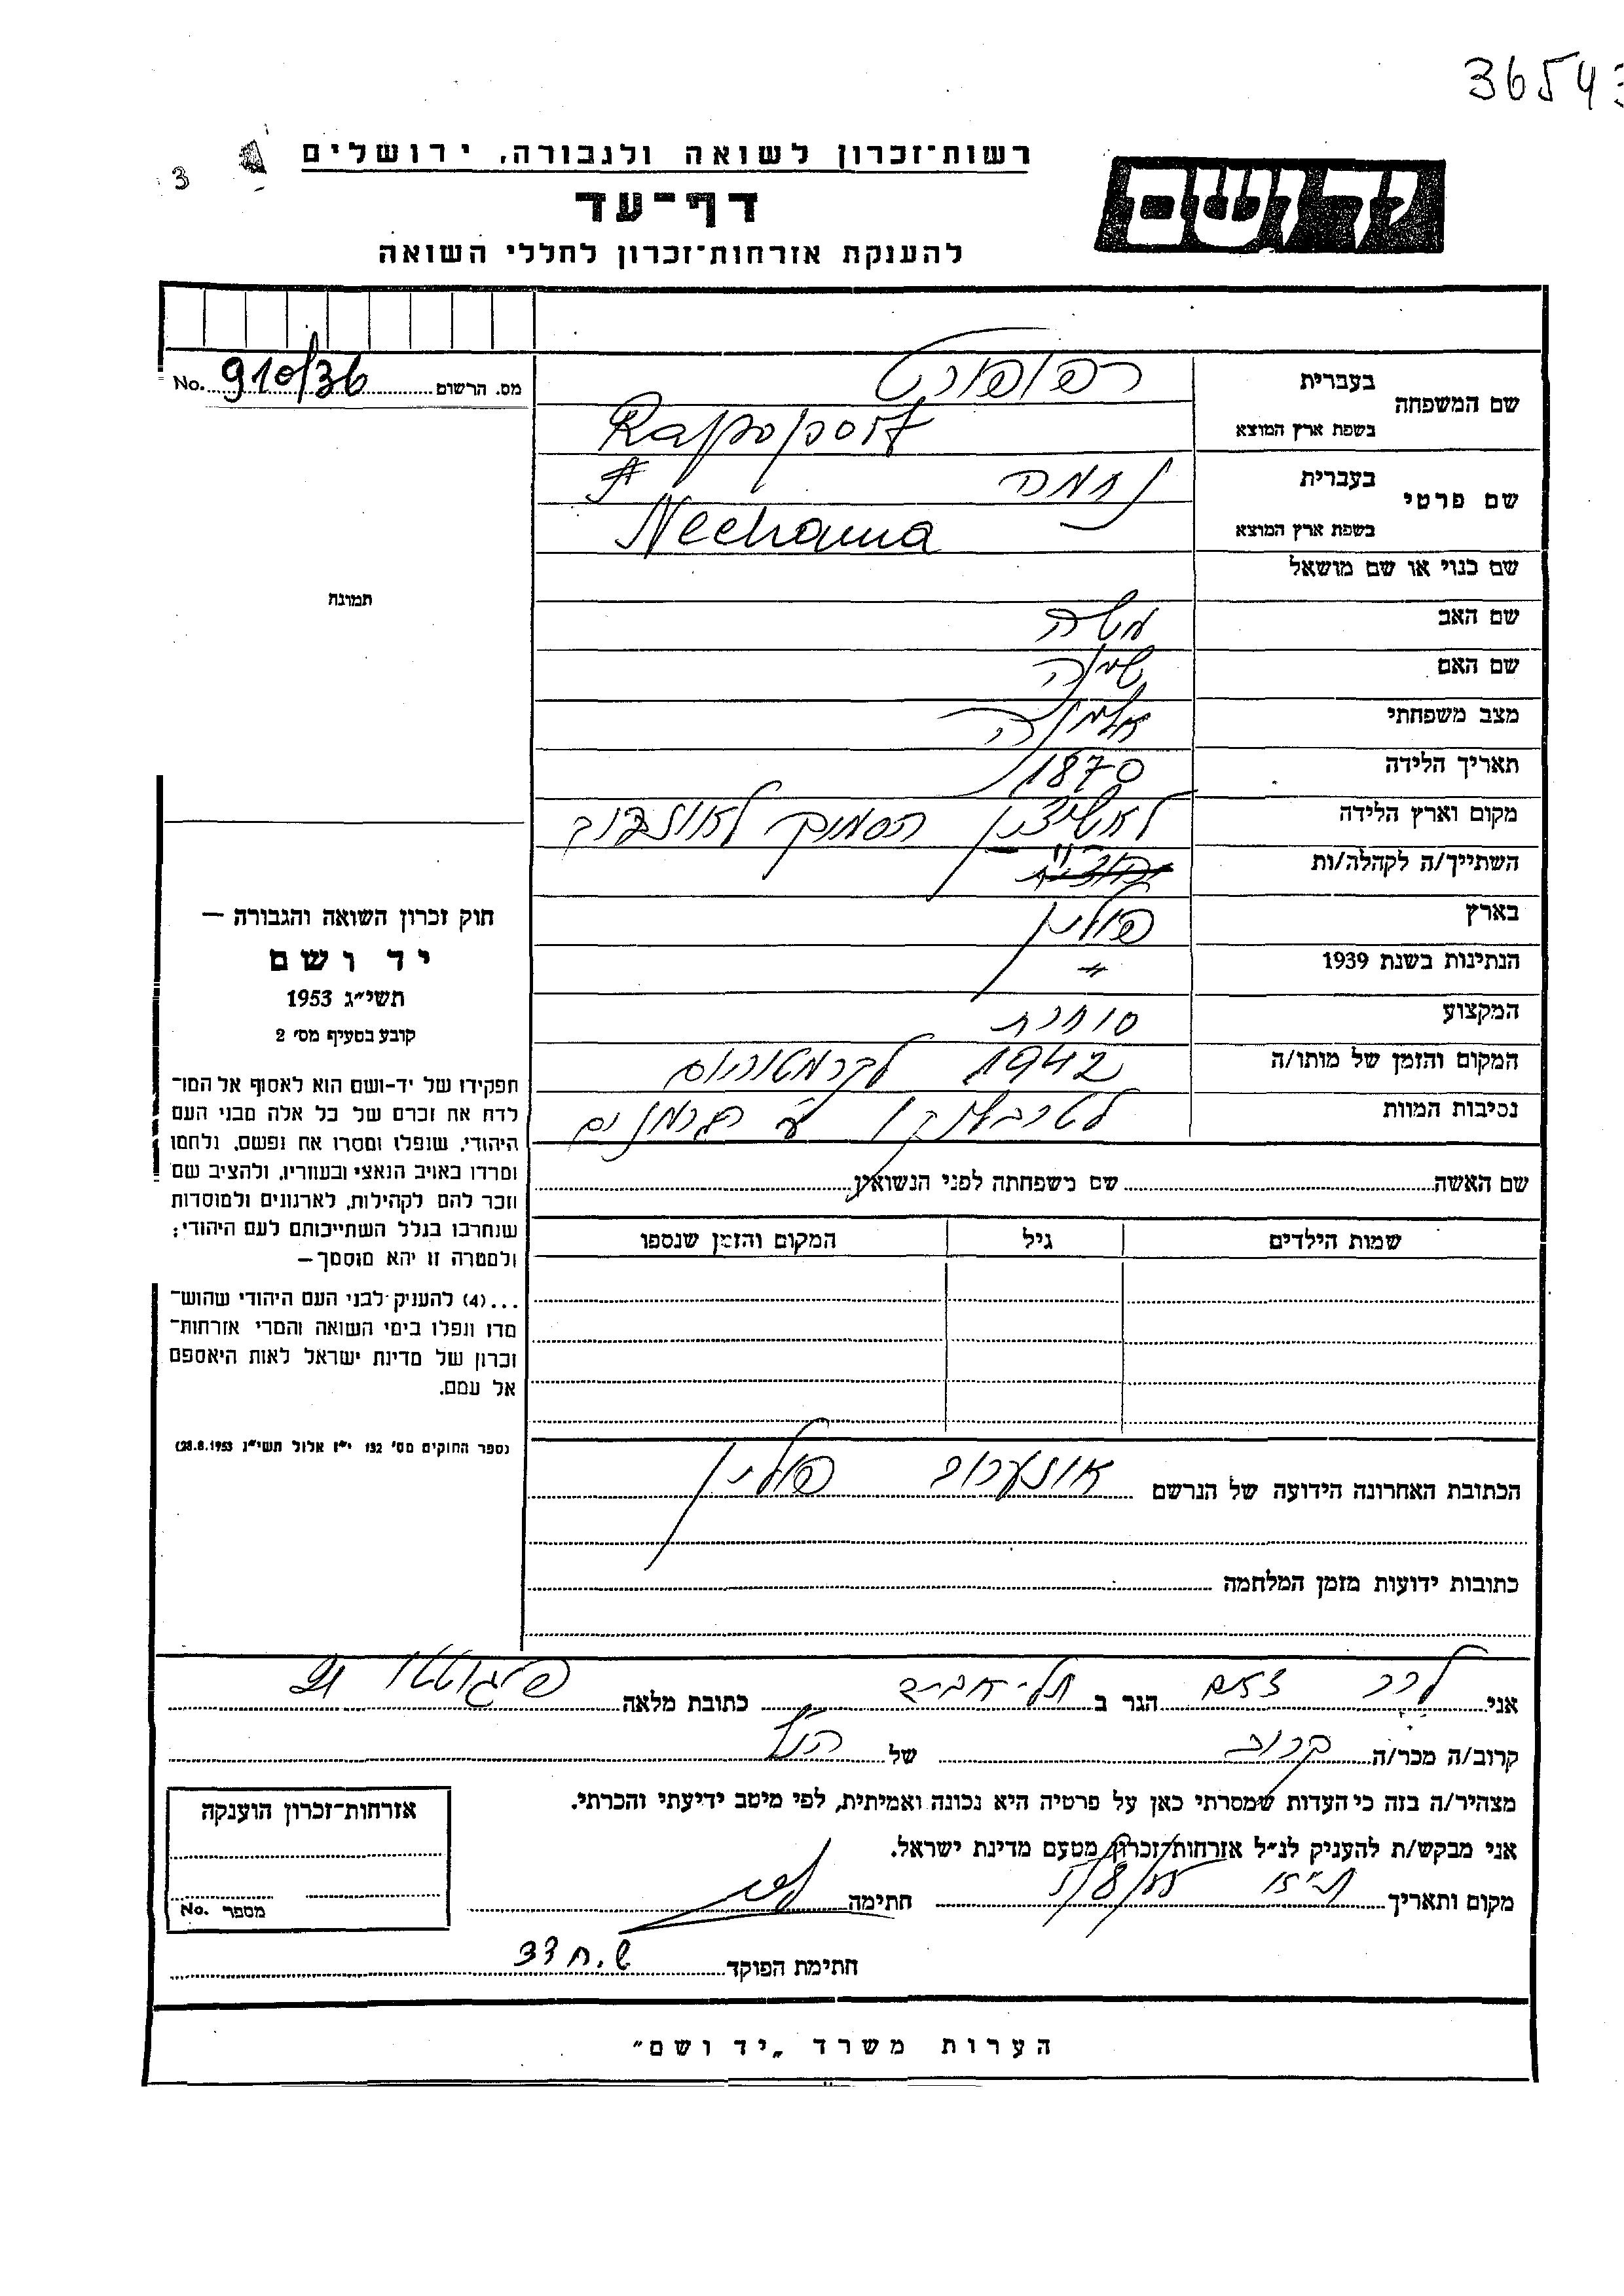 36543
רשות־זכרון לשואה ולגבורה, ירושלים
3
יד ושם
דף־עד
להענקת אזרחות־זכרון לחללי השואה
No. 910/36 מס. הרשום
שם המשפחה בעברית רפופורט
בשפת ארץ המוצא Rapoport
שם פרטי בעברית נחמה
בשפת ארץ המוצא Nechama
שם כנוי או שם מושאל
תמונה
שם האב משה
שם האם
מצב משפחתי אלמנה
תאריך הלידה 1870
מקום וארץ הלידה הסמוך
השתייך/ה לקהלה/ות
בארץ פולין
הנתינות בשנת 1939 "
המקצוע סוחרת
המקום והזמן של מותו/ה 1942
נסיבות המוות ע"י גרמנים
שם האשה שם משפחתה לפני הנשואין
שמות הילדים גיל המקום והזמן שנספו
חוק זכרון השואה והגבורה —
יד ושם
תשי״ג 1953
קובע בסעיף מס׳ 2
תפקידו של יד-ושם הוא לאסוף אל המו־
לדת את זכרם של כל אלה מבני העם
היהודי, שנפלו ומסרו את נפשם, נלחמו
ומרדו באויב הנאצי ובעוזריו, ולהציב שם
וזכר להם לקהילות, לארגונים ולמוסדות
שנחרבו בגלל השתייכותם לעם היהודי;
ולמטרה זו יהא מוסמך—
...(4) להעניק לבני העם היהודי שהוש־
מדו ונפלו בימי השואה והמרי אזרחות־
זכרון של מדינת ישראל לאות היאספם
אל עמם.
(ספר החוקים מס׳ 132 י״ז אלול תשי״ג 28.8.1953)
הכתובת האחרונה הידועה של הנרשם פולין
כתובות ידועות מזמן המלחמה
אני הגר ב תל-אביב כתובת מלאה
קרוב/ה מכר/ה קרוב של הנ"ל
מצהיר/ה בזה כי העדות שמסרתי כאן על פרטיה היא נכונה ואמיתית, לפי מיטב ידיעתי והכרתי.
אני מבקש/ת להעניק לנ״ל אזרחות־זכרון מטעם מדינת ישראל.
מקום ותאריך חתימה
חתימת הפוקד
אזרחות־זכרון הוענקה
No. מספר
הערות משרד „יד ושם״